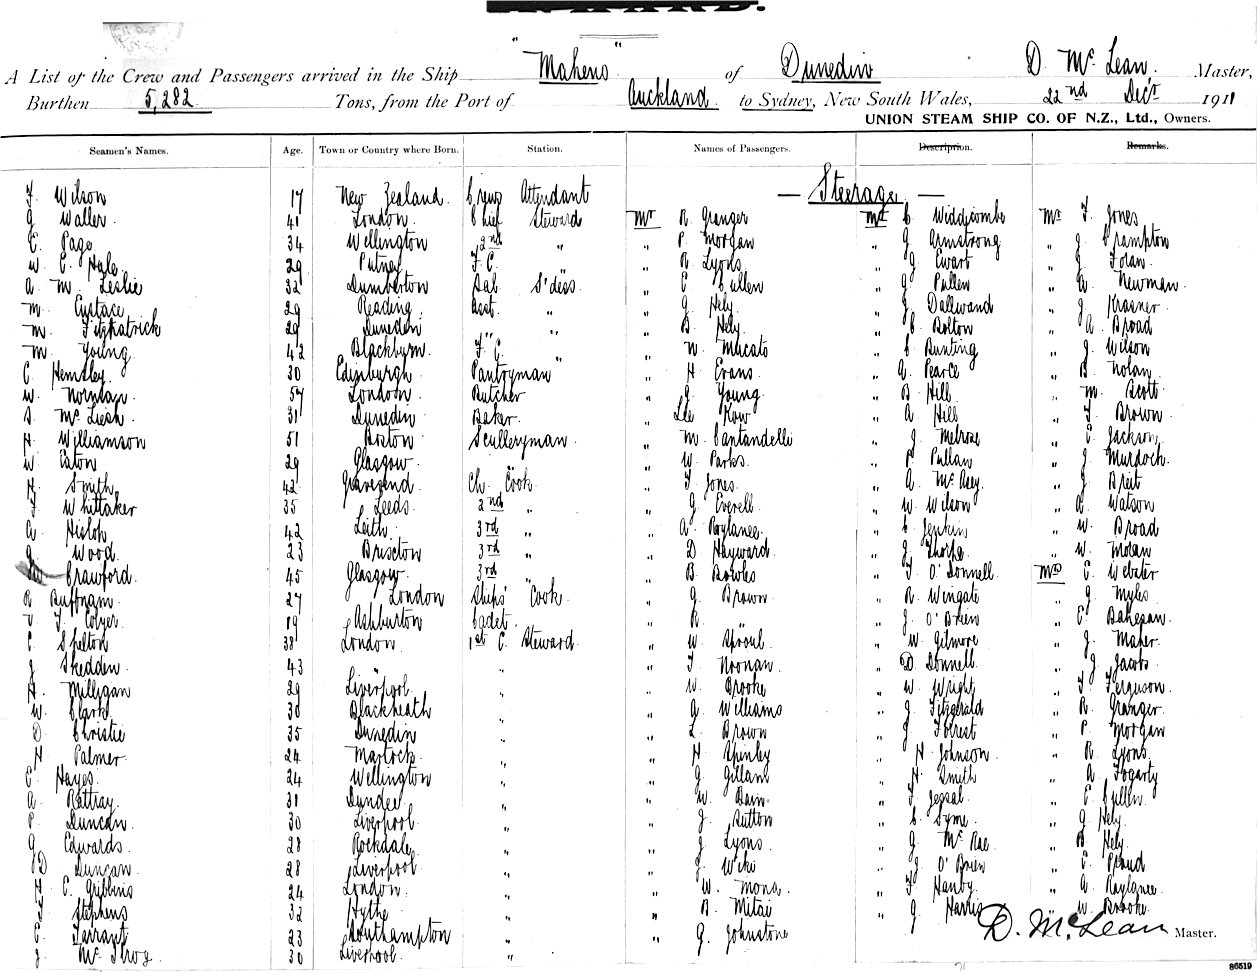 INWARD.
A List of the Crew and Passengers arrived in the Ship "Maheno" of Dunedin D. McLean. Master,
Burthen 5,282. Tons, from the Port of Auckland to Sydney, New South Wales, 22nd Decr 1911
UNION STEAM SHIP CO. OF N.Z., Ltd., Owners.
Seamen's Names. Age. Town or Country where Born. Station. Names of Passengers. Description. Remarks.
— Steerage —
F. Wilson 17 New Zealand Crews Attendant
G. Waller 41 London. Chief Steward Mr R. Granger Mr C. Widdicombe Mr F. Jones
E. Page 34 Wellington 2nd " " P. Morgan " J. Armstrong " J. Frampton
W. E. Hale 29 Putney F. C. " R. Lyons " J. Ewart " J. Foran
A. M. Leslie 32 Dumbarton Sal. S'dess " E. Cullen " J. Pullen " W. Newman
M. Eustace 29 Reading. Asst. " " J. Hely " J. Dalliward " J. Krasner
M. Fitzpatrick 29 Dunedin " " " B. Hely " C. Bolton " A. Broad
M. Young 42 Blackburn. F. C. " " N. Mucato " C. Bunting " J. Wilson
C. Hemsley 30 Edinburgh Pantryman " H. Evans " A. Pearce " B. Nolan
W. Norman. 57 London. Butcher " J. Young " B. Hill " M. Scott
S. McLiesh 31 Dunedin Baker. " Lee Kow " A. Hill " F. Brown
H. Williamson 51 Boston Sculleryman. " M. Santandelli " J. Melrose " E. Jackson
W. Eaton 29 Glasgow. " W. Parks. " P. Pullan " J. Murdoch.
H. Smith 42 Gravesend Ch. Cook. " F. Jones. " A. " J. Breit
F. Whittaker 35 Leeds 2nd " " G. Everell " W. Wilson " A. Watson
A. Hislop 42 Leith. 3rd " " A. Raylanee " C. Jenkin " W. Broad
G. Wood 23 Brixton 3rd " " D. Hayward. " J. Thorpe " W. Molan
Crawford 45 Glasgow. 3rd " B. Bowles " F. O'Donnell. Mrs E. Webster
R. Buffham 27 London Ships' Cook. " G. Brown " R. Wingate " J. Myles
F. Colyer 19 Ashburton Cadet. " R. " " J. O'Brien " E. Bakesan
C. Shelton 38 London 1st C. Steward " W. Sproul " W. Gilmore " J. Maher
J. Skedden 43 " " " F. Noonan. " D. Donnell. " J. Jacobs
H. Milligan 29 Liverpool. " " W. Brooke " W. Wright " F. Ferguson.
W. Clark 30 Blackheath " " A. Williams " J. Fitzgerald " R. Granger
D. Christie 35 Dunedin " " L. Brown " J. Forrest " P. Morgan
H. Palmer 24 Martock. " " H. Shinley " H. Johnson " R. Lyons
E. Hayes. 24 Wellington " " G. Gillans " H. Smith " A. Fogarty
A. Rattray. 31 Dundee " " W. Bain " F. Jessal. " E. Cullen.
P. Duncan. 30 Liverpool " " J. Sutton " C. Syme " J. Hely
G. Edwards. 28 Rockdale " " J. Lyons. " G. McRae " B. Hely
D. Duncan 28 Liverpool " " J. " J. O'Brien " E. Proud
H. C. Gribbins 24 London " " W. Mona. " F. Hanby " A. Raylanee.
F. Stephens 32 Hythe " " R. Mitai " G. Harris " W. Brooke.
E. Tarrant 23 Southampton " " G. Johnstone D. McLean Master.
J. 30 Liverpool. "
86519